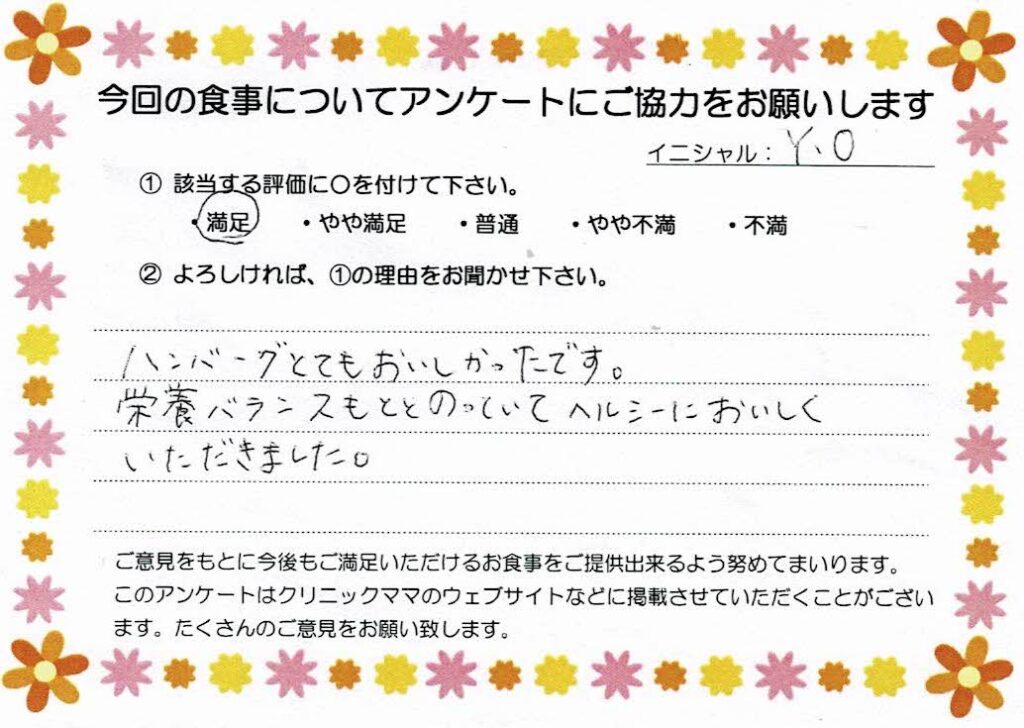 今回の食事についてアンケートにご協力をお願いします
イニシャル：Y、O
① 該当する評価に〇を付けて下さい。
・満足 ・やや満足 ・普通 ・やや不満 ・不満
② よろしければ、①の理由をお聞かせ下さい。
ハンバーグとてもおいしかったです。
栄養バランスもととのっていてヘルシーにおいしく
いただきました。
ご意見をもとに今後もご満足いただけるお食事をご提供出来るよう努めてまいります。
このアンケートはクリニックママのウェブサイトなどに掲載させていただくことがござい
ます。たくさんのご意見をお願い致します。